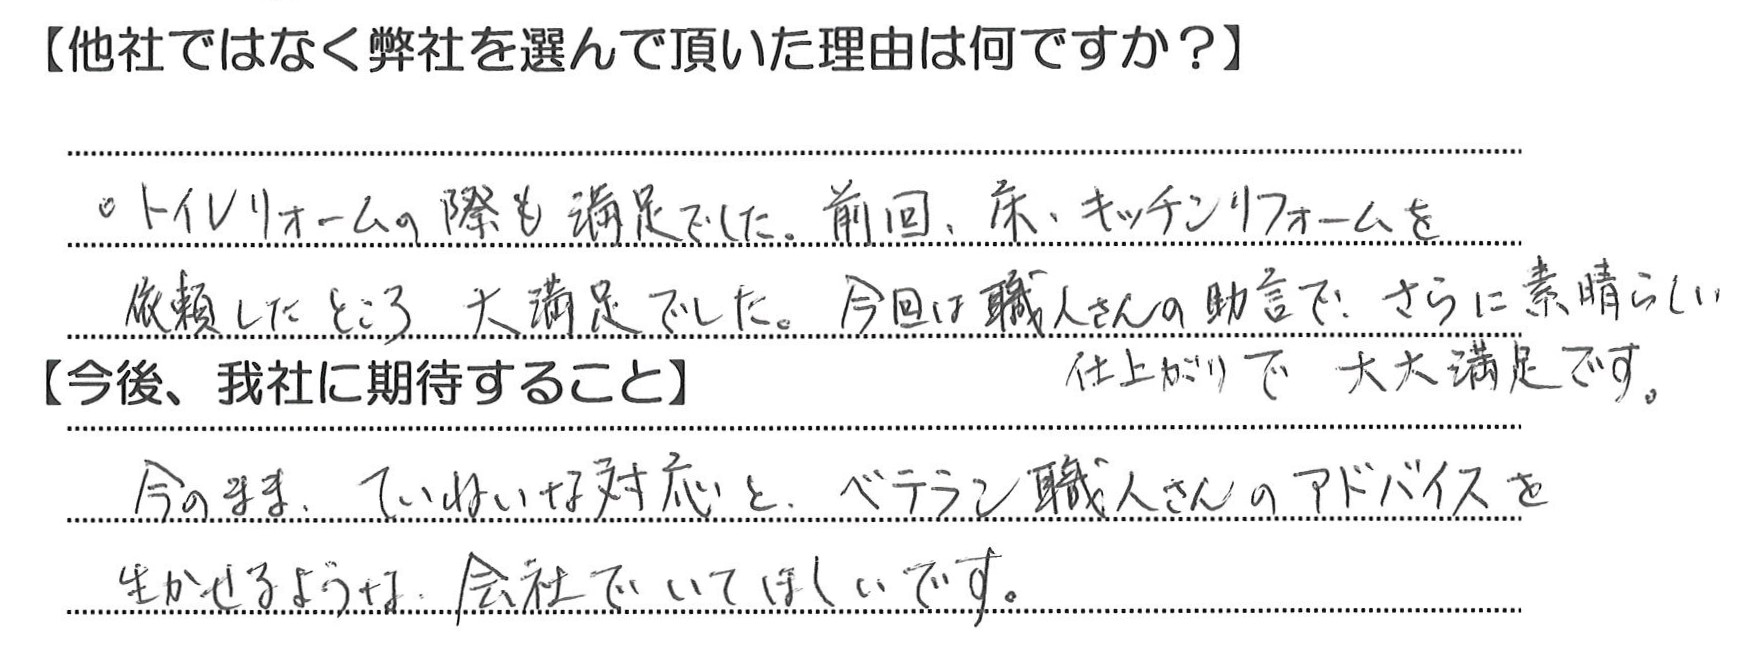 【他社ではなく弊社を選んで頂いた理由は何ですか？】
。トイレリォームの際も満足でした。前回、床、キッチンリフォームを
依頼したところ 大満足でした。今回は職人さんの助言で、さらに素晴らしい
仕上がりで 大大満足です。
【今後、我社に期待すること】
今のまま、ていねいな対応と、ベテラン職人さんのアドバイスを
生かせるような、会社でいてほしいです。